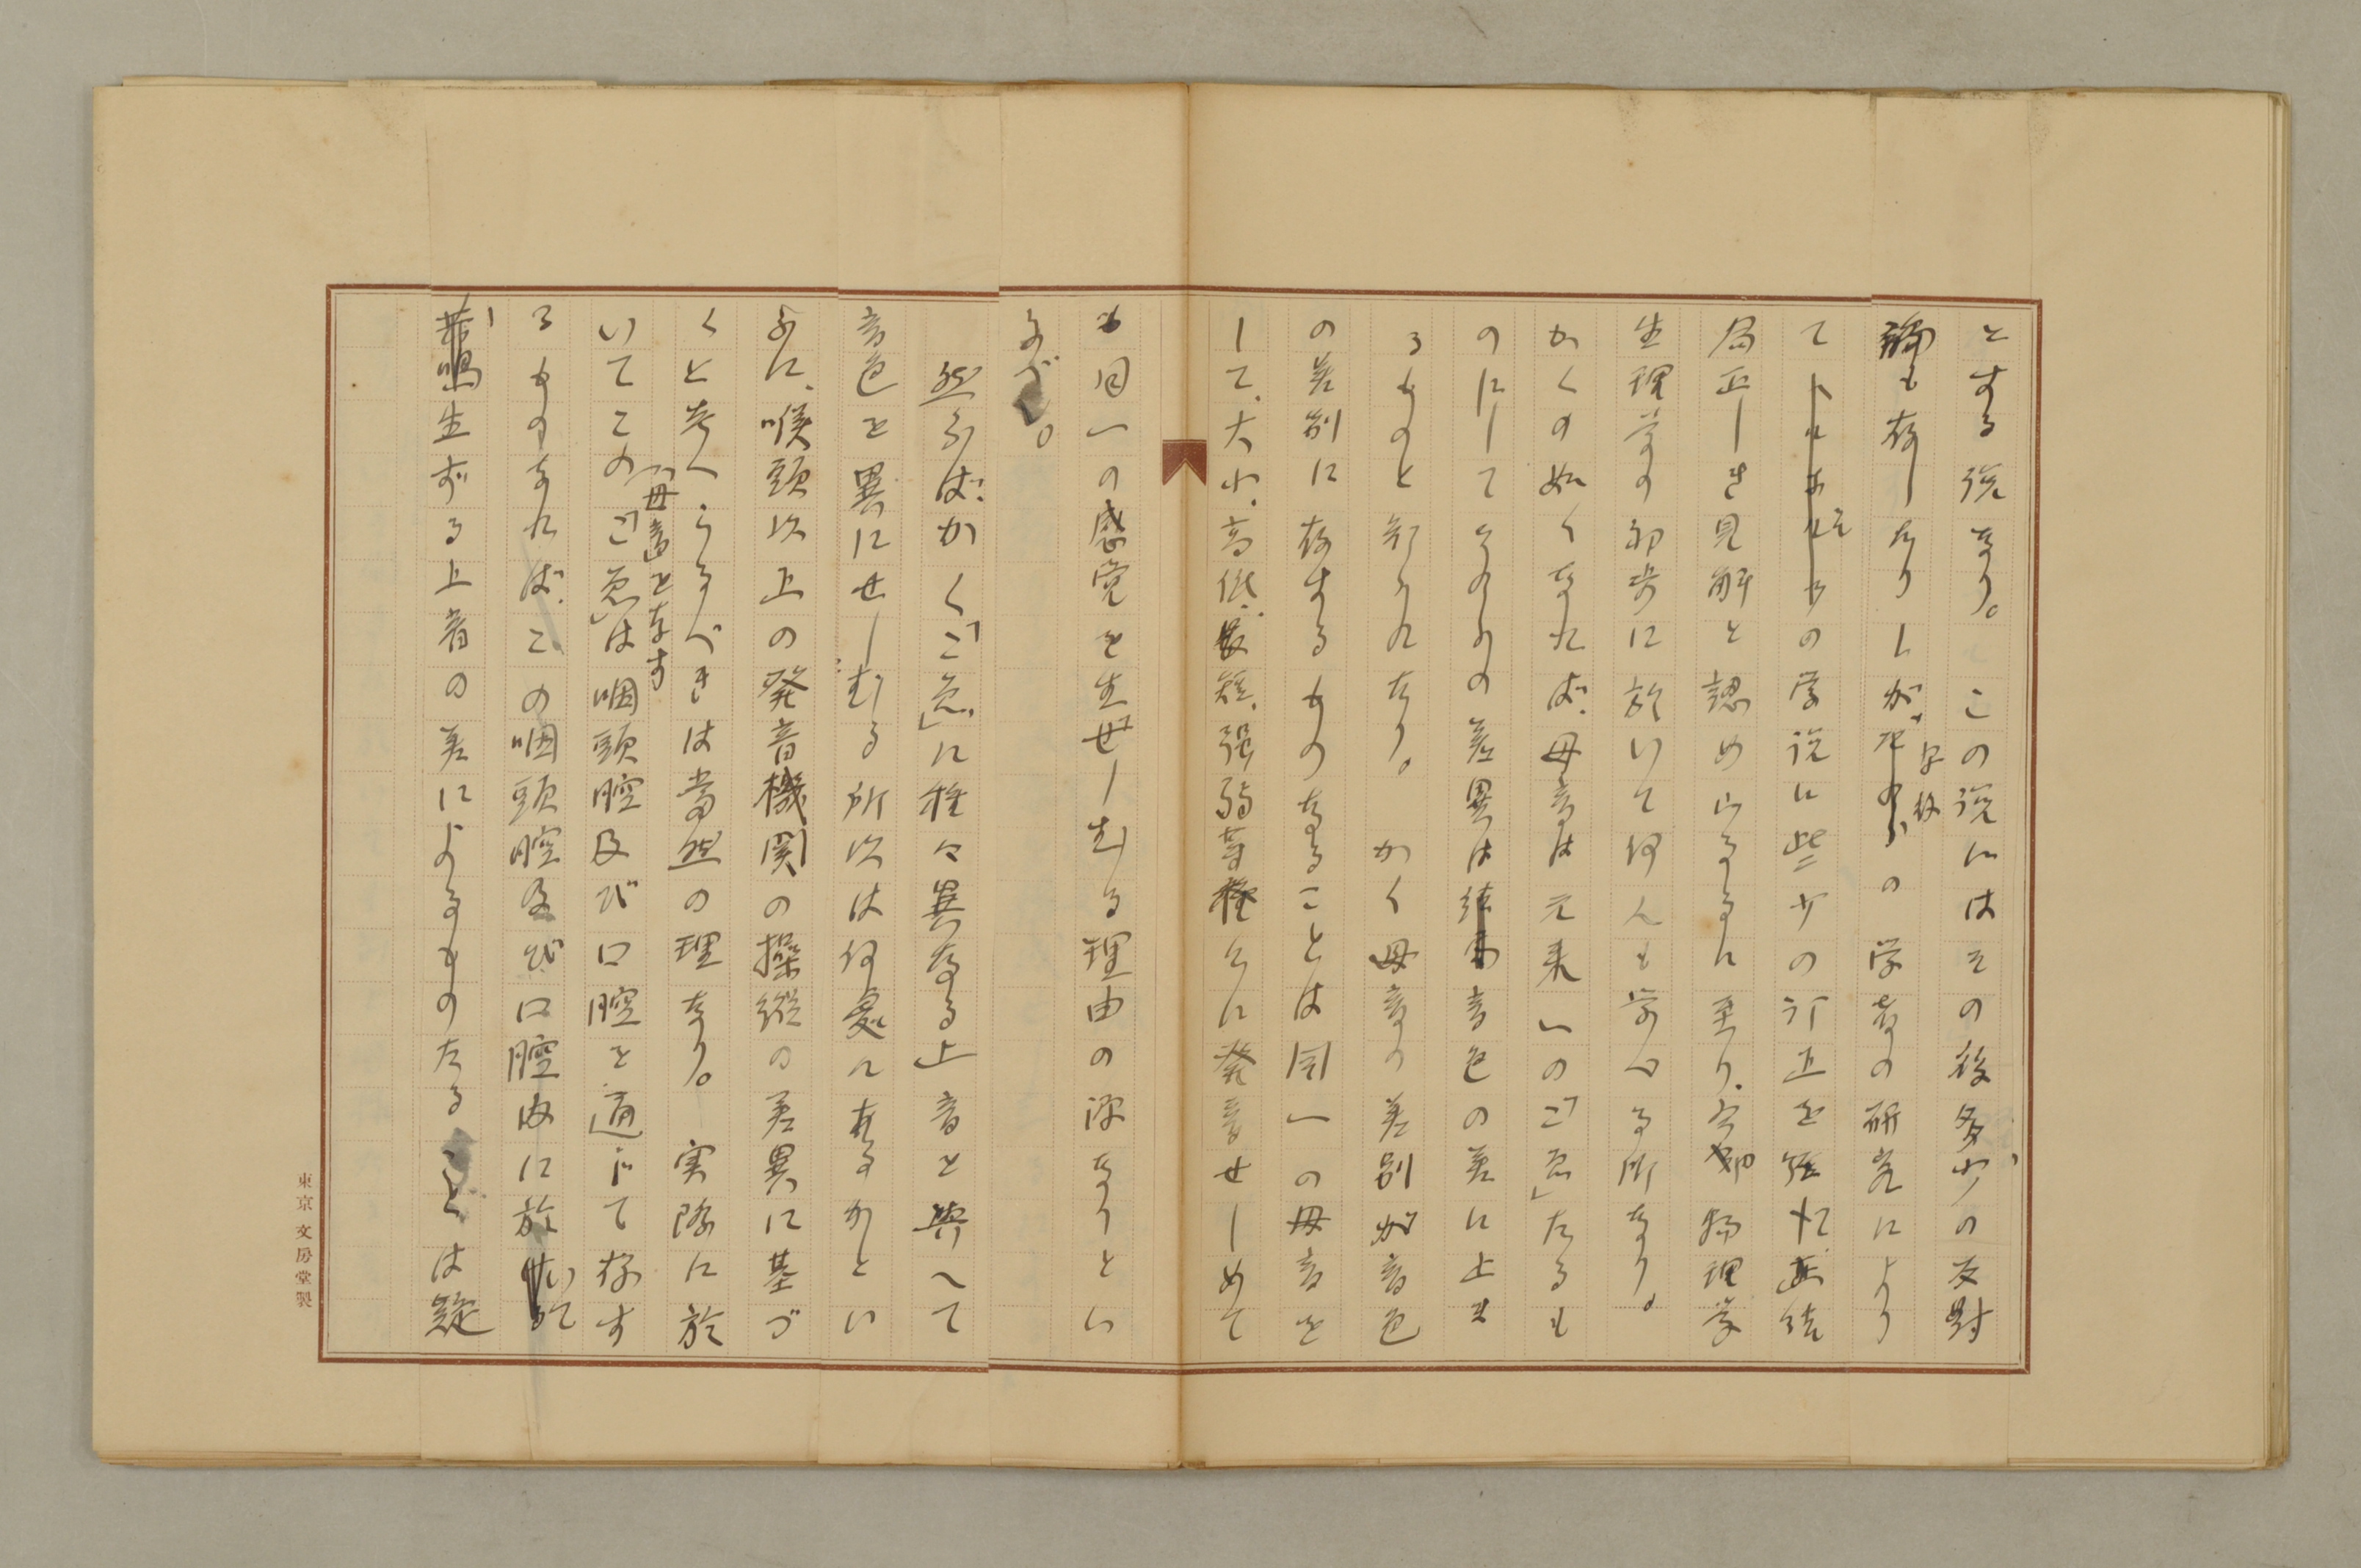 とする説なり。この説にはその後多少の反對
論も存したりしが、
早枚
の学者の研究により
て
そ
の学説に些少の訂正を経た
局正しき見解と認めらるるに至り、今
物理学
生理学の初歩に於いて何人も学べる所なり。
かくの如くなれば、母音は元来一の「こゑ」たるも
のにしてそのものの差異は
音色の差に止ま
るものと知られたり。かく母音の差別が音色
の差別に存するものなることは同一の母音を
して、大小、高低、長短、强弱等種々に発音せしめて
も同一の感覚を生ぜしむる理由の深なりとい
ふべし。
然らば、かく「こゑ」に種々異なる上音を與へて
音色を異にせしむる所以は何處にあるかとい
ふに、喉頭以上の発音機関の操縦の差異に基づ
くと考へらるべきは當然の理なり。実際に於
「母音」をなす
いてこの「こゑ」は咽頭腔及び口腔を通じて存す
るものなれば、この咽頭腔及び口腔内に於いて
共鳴生ずる上音の差によるものたることは疑
東京文房堂製